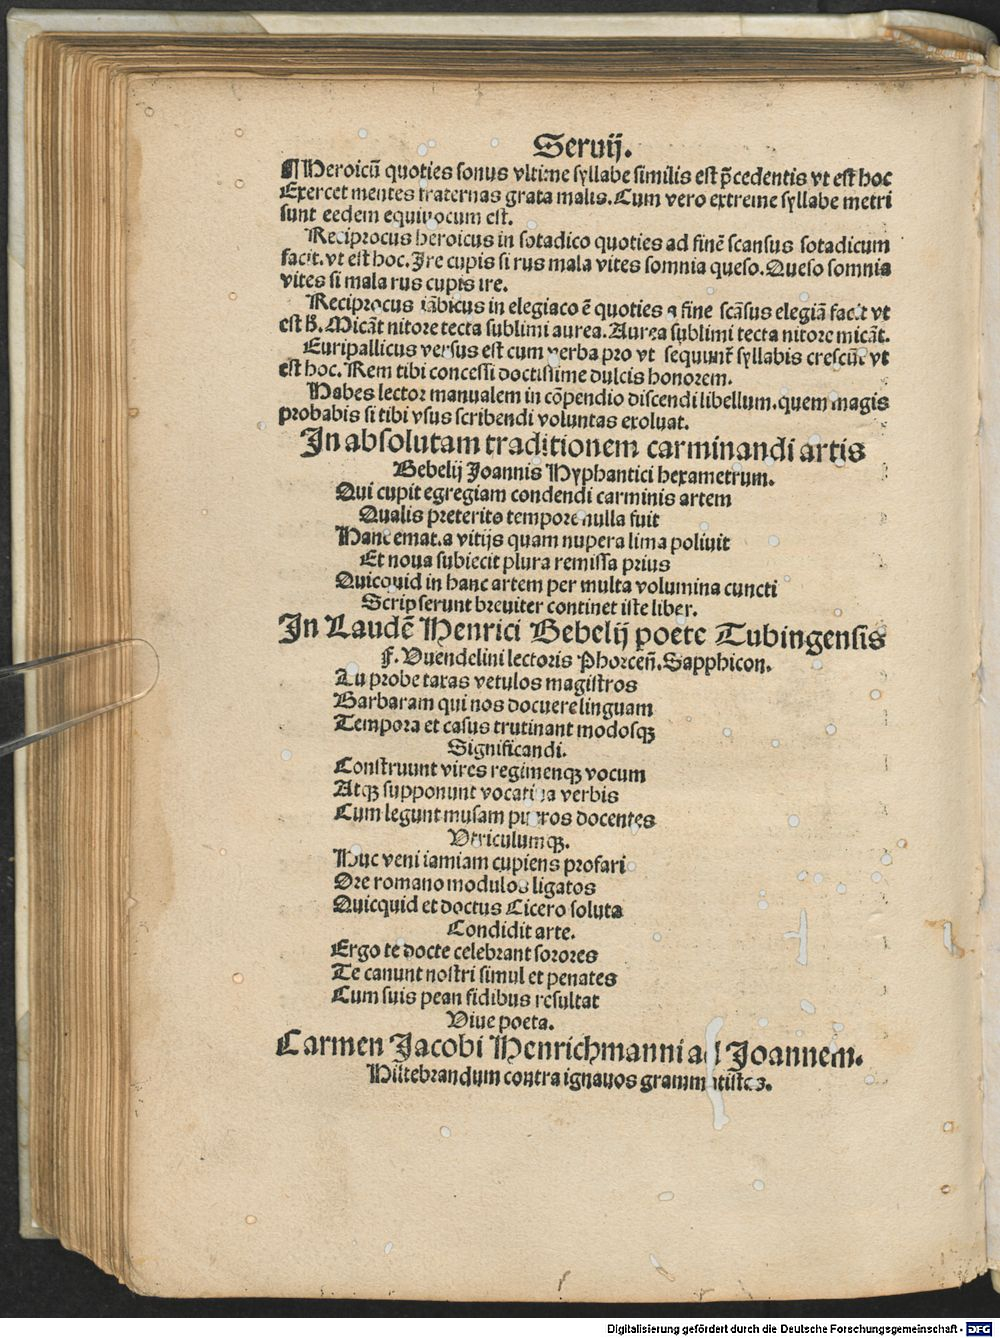 Seruij.
¶ Heroicū quoties sonus vltime syllabe similis est p̄cedentis vt est hoc
Exercet mentes fraternas grata malis. Cum vero extreme syllabe metri
sunt eedem equiuocum est.
Reciprocus heroicus in sotadico quoties ad finē scansus sotadicum
facit. vt est hoc. Ire cupis si rus mala vites somnia queso. Queso somnia
vites si mala rus cupis ire.
Reciprocus iābicus in elegiaco ē quoties a fine scāsus elegiā facit vt
est h̄. Micāt nitore tecta sublimi aurea. Aurea sublimi tecta nitore micāt.
Euripallicus versus est cum verba pro vt sequunt̄ syllabis crescūt vt
est hoc. Rem tibi concessi doctissime dulcis honorem.
Habes lector manualem in cōpendio discendi libellum. quem magis
probabis si tibi vsus scribendi voluntas exoluat.
In absolutam traditionem carminandi artis
Bebelij Joannis Hyphantici hexametrum.
Qui cupit egregiam condendi carminis artem
Qualis preterito tempore nulla fuit
Hanc emat. a vitijs quam nupera lima poliuit
Et noua subiecit plura remissa prius
Quicquid in hanc artem per multa volumina cuncti
Scripserunt breuiter continet iste liber.
In Laudē Henrici Bebelij poete Tubingensis
F. Vuendelini lectoris Phorceñ. Sapphicon.
Tu probe taxas vetulos magistros
Barbaram qui nos docuere linguam
Tempora et casus trutinant modosqꝫ
Significandi.
Construunt vires regimenqꝫ vocum
Atqꝫ supponunt vocatiua verbis
Cum legunt musam pueros docentes
Vtriculumqꝫ.
Huc veni iamiam cupiens profari
Ore romano modulos ligatos
Quicquid et doctus Cicero soluta
Condidit arte.
Ergo te docte celebrant sorores
Te canunt nostri simul et penates
Cum suis pean fidibus resultat
Viue poeta.
Carmen Jacobi Henrichmanni ad Joannem.
Hiltebrandum contra ignauos grammatistas.
Digitalisierung gefördert durch die Deutsche Forschungsgemeinschaft - DFG